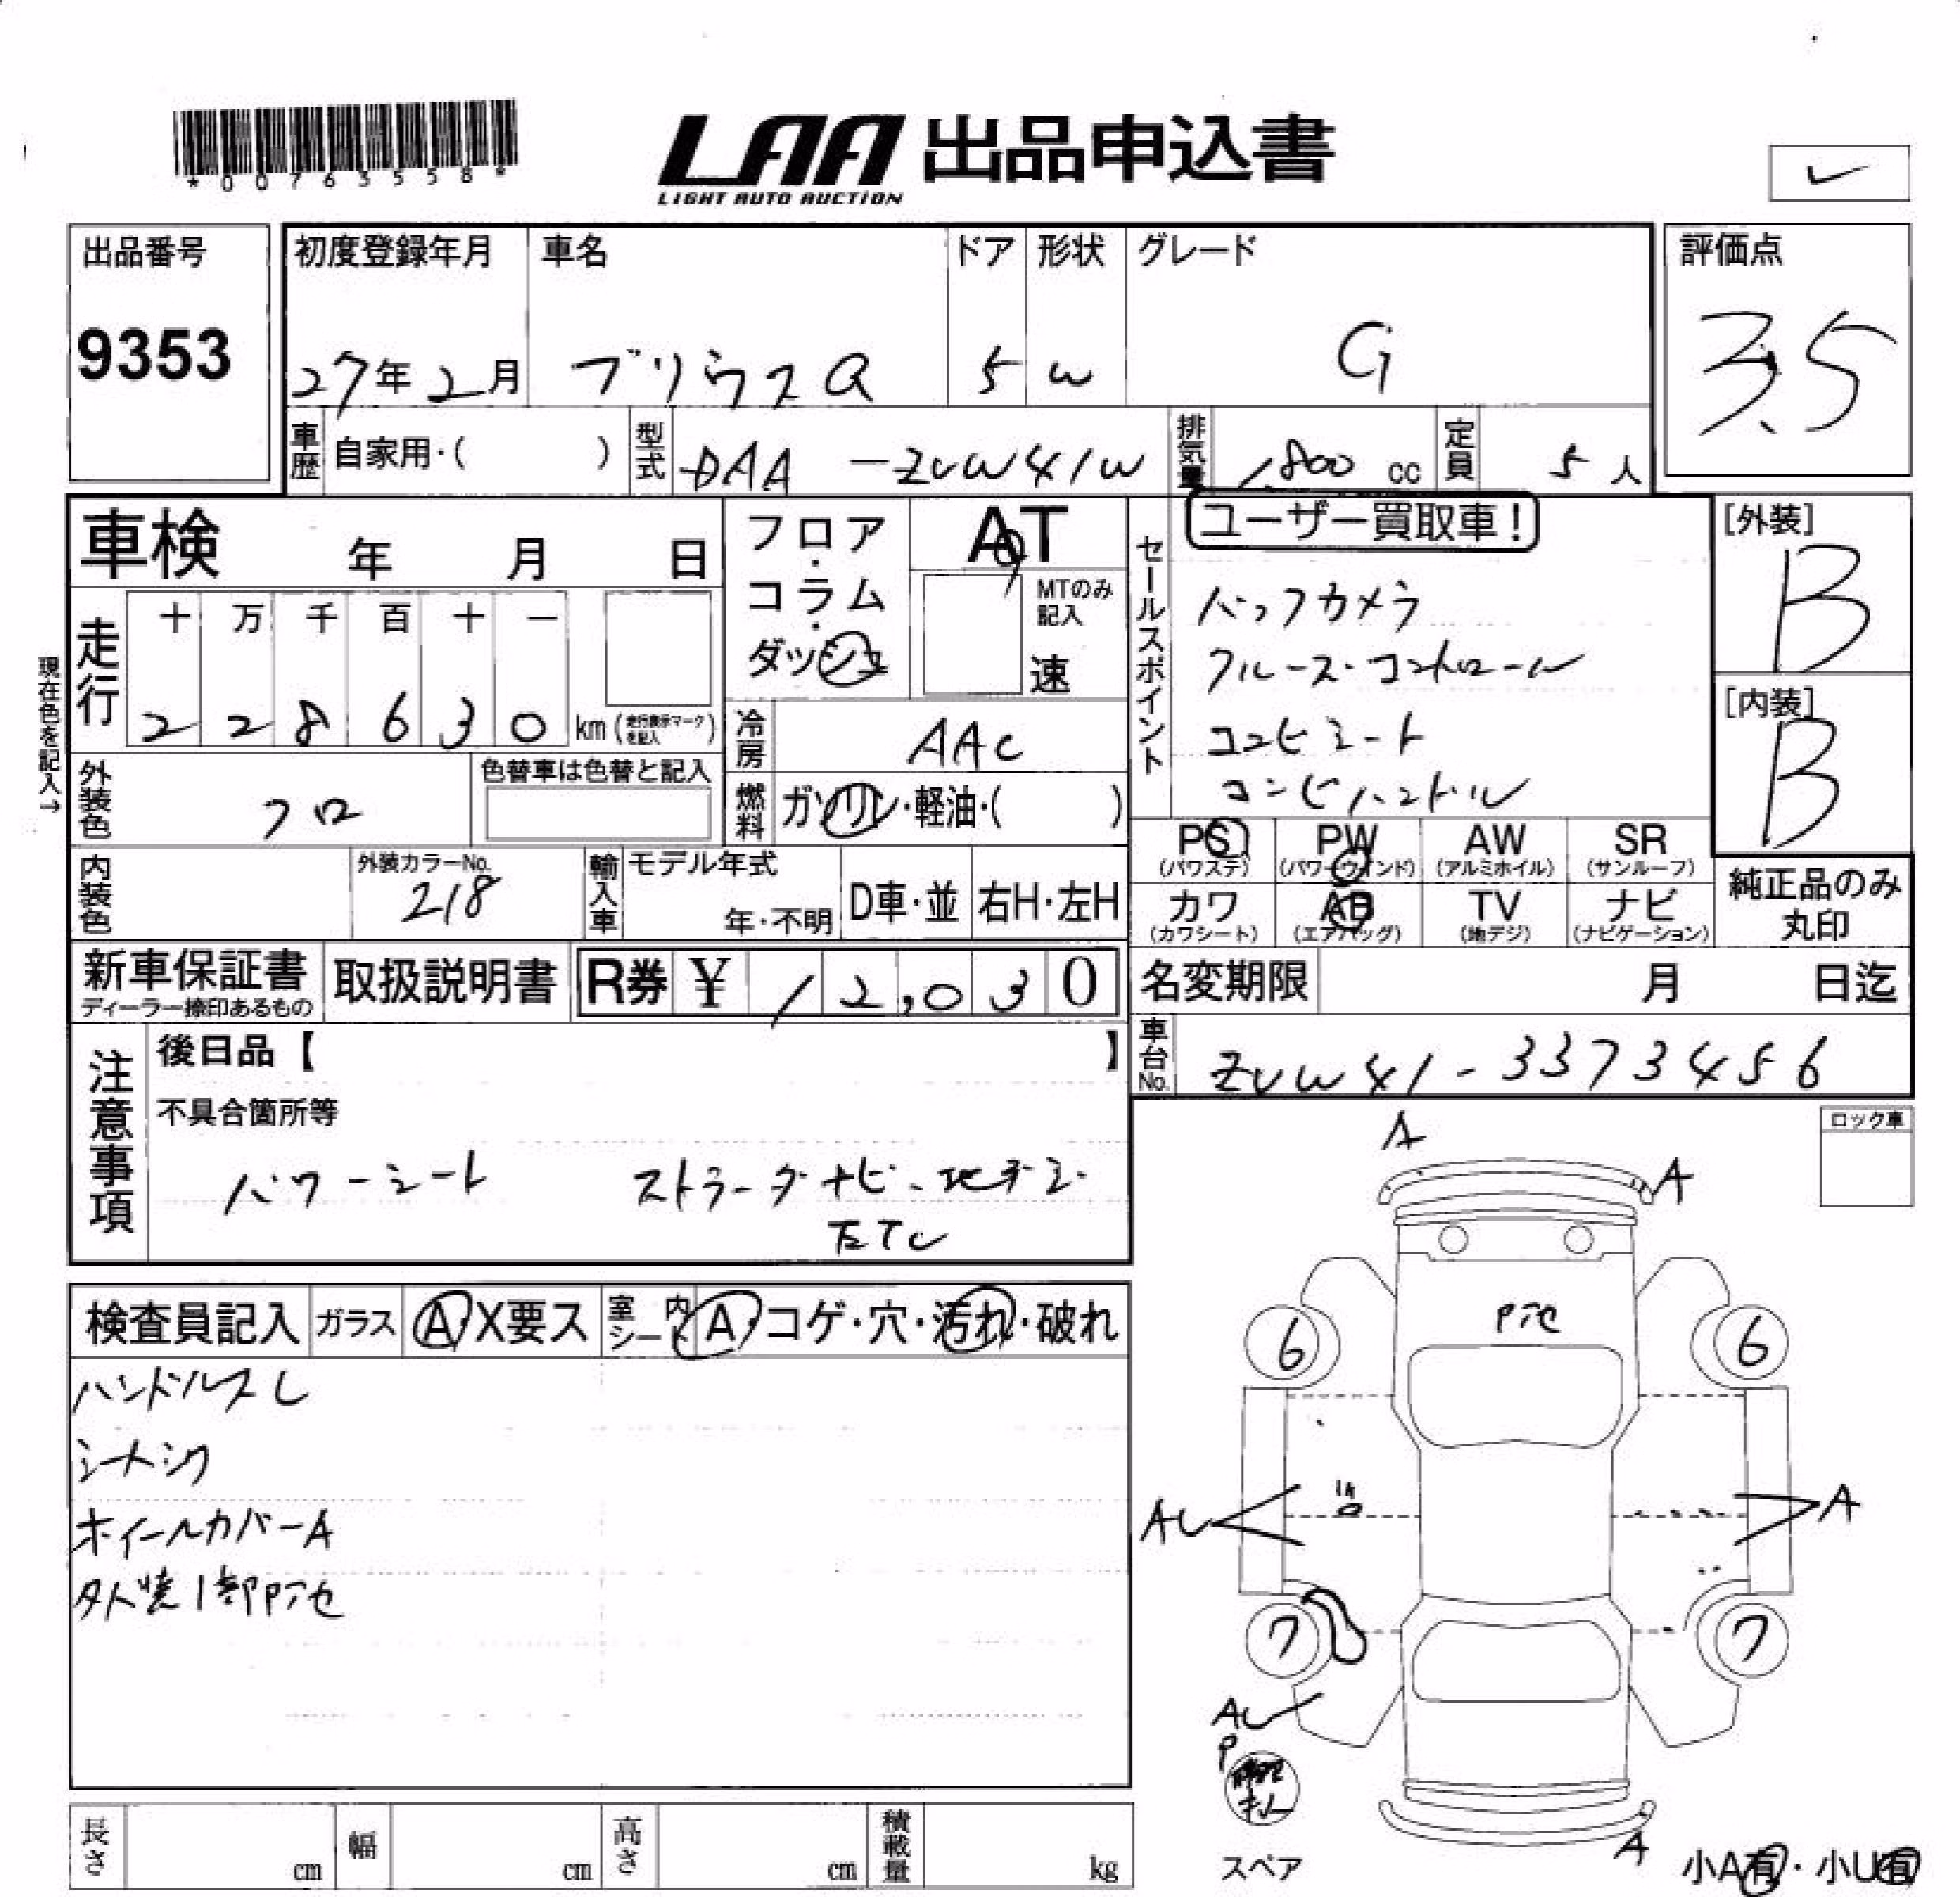 *00763558*
LAA 出品申込書
LIGHT AUTO AUCTION
出品番号
9353
初度登録年月
27年2月
車名
プリウスα
ドア
5
形状
W
グレード
G
評価点
3.5
車歴 自家用・( )
型式 DAA-ZVW41W
排気量 1,800 cc
定員 5人
車検 年 月 日
フロア・コラム・ダッシュ
AT
MTのみ記入
速
走行 十 万 千 百 十 一
2 2 8 6 3 0 km (走行表示マークを記入)
現在色を記入→
冷房 AAC
外装色 クロ
色替車は色替と記入
燃料 ガソリン・軽油・( )
内装色
外装カラーNo.
218
輸入車
モデル年式
年・不明
D車・並
右H・左H
セールスポイント
ユーザー買取車!
バックカメラ
クルーズ・コントロール
コンビシート
コンビハンドル
[外装]
B
[内装]
B
PS (パワステ)
PW (パワーウィンド)
AW (アルミホイル)
SR (サンルーフ)
カワ (カワシート)
AB (エアバッグ)
TV (地デジ)
ナビ (ナビゲーション)
純正品のみ丸印
新車保証書
ディーラー捺印あるもの
取扱説明書
R券 ¥ 12,030
名変期限 月 日迄
車台No. ZVW41-3373456
注意事項
後日品【 】
不具合箇所等
パワーシート ストラーダナビ・地デジ・
ETC
ロック車
検査員記入
ガラス A・X要ス
室内シート A・コゲ・穴・汚れ・破れ
ハンドルスレ
シートシワ
ホイールカバーA
A
A
6
6
AU
A
7
7
AU
P
A
スペア
小A有・小U有
長さ cm
幅 cm
高さ cm
積載量 kg